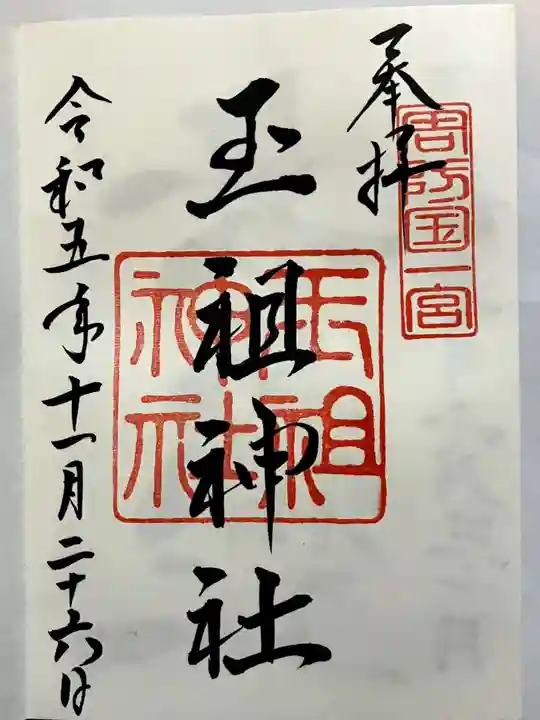 奉拝
周防国一宮
玉祖神社
玉祖神社
令和五年十一月二十六日